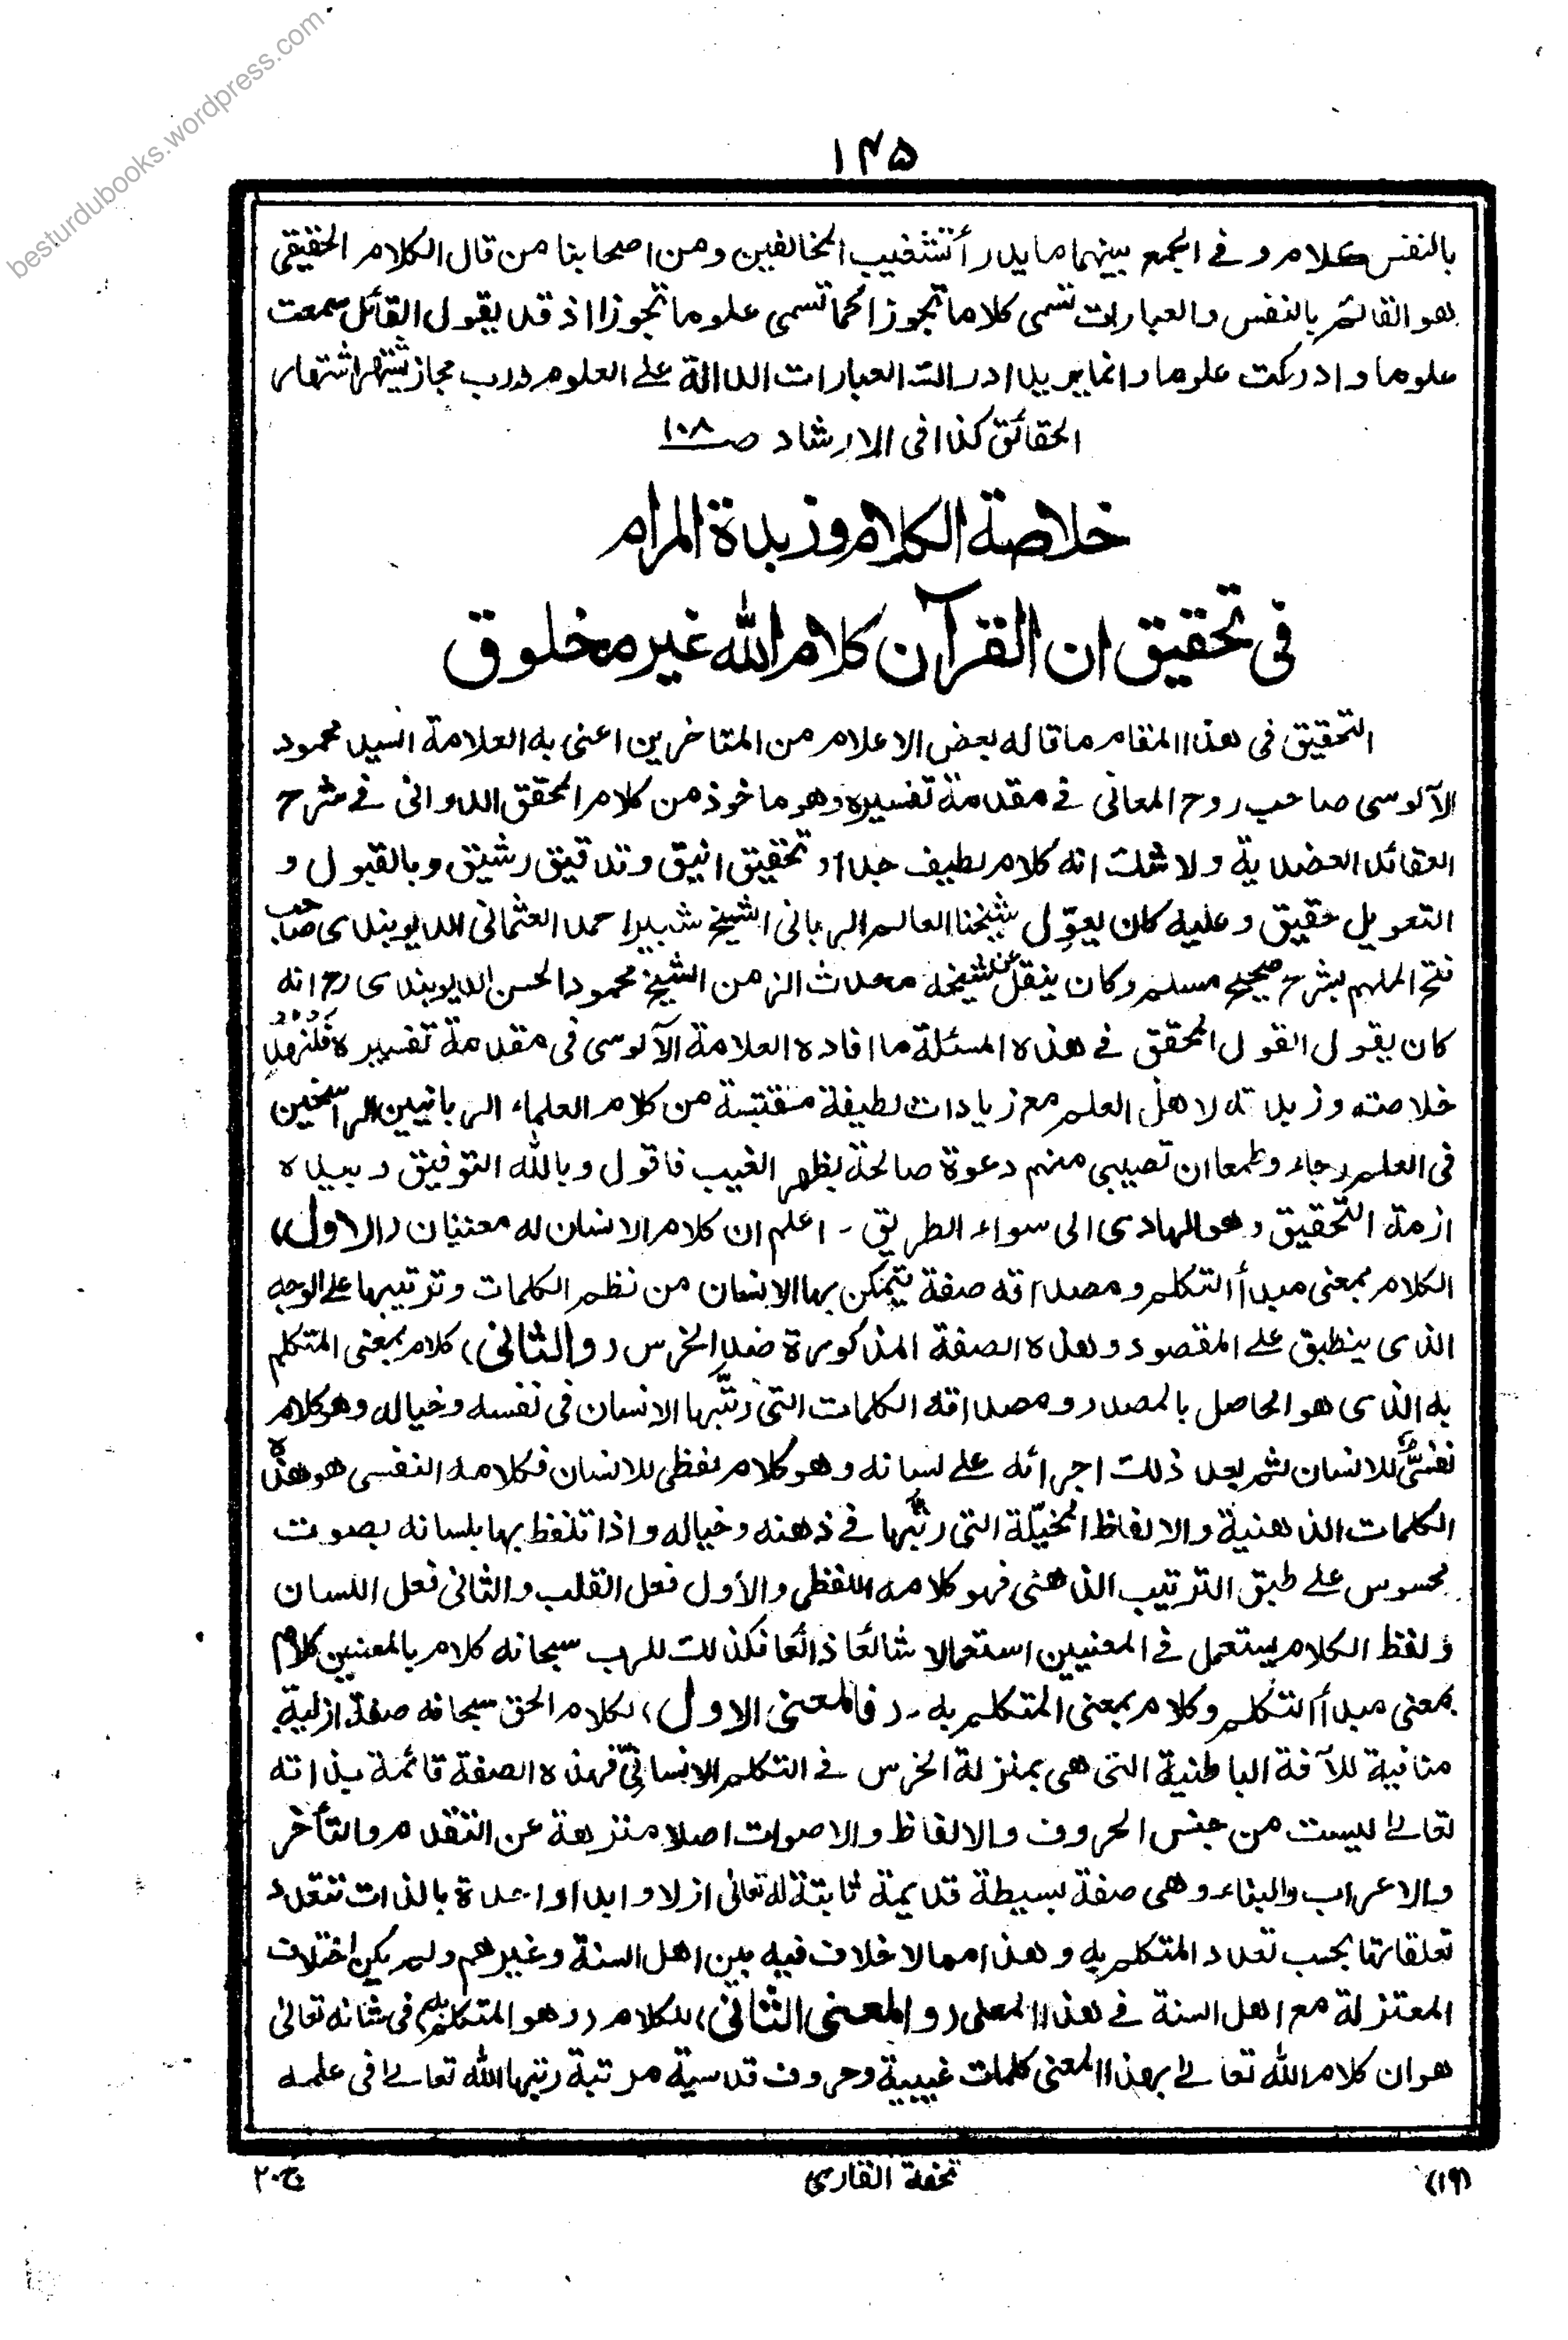 besturdubooks.wordpress.com
١٤٥
بالنفس كلام وفى الجمع بينهما ما يدرأ تشغيب المخالفين ومن اصحابنا من قال الكلام الحقيقى
هو القائم بالنفس والعبارات تسمى كلاما تجوزا كما تسمى علوما تجوزا اذ قد يقول القائل سمعت
علوما وادركت علوما وانما يريد ادراك العبارات الدالة على العلوم ورب مجاز يشتهر اشتهار
الحقائق كذا فى الارشاد صـ١٠٨
خلاصة الكلام وزبدة المرام
فى تحقيق ان القرآن كلام الله غير مخلوق
التحقيق فى هذا المقام ما قاله بعض الاعلام من المتاخرين اعنى به العلامة السيد محمود
الآلوسى صاحب روح المعانى فى مقدمة تفسيره وهو ماخوذ من كلام المحقق الدوانى فى شرح
العقائد العضدية ولا شك انه كلام لطيف جدا وتحقيق انيق وتدقيق رشيق وبالقبول و
التعويل حقيق وعليه كان يعوّل شيخنا العالم الربانى الشيخ شبير احمد العثمانى الديوبندى صاحب
فتح الملهم بشرح صحيح مسلم وكان ينقل عن شيخه محدث الزمن الشيخ محمود الحسن الديوبندى رح انه
كان يقول القول المحقق فى هذه المسئلة ما افاده العلامة الآلوسى فى مقدمة تفسيره فلنهد
خلاصته وزبدته لاهل العلم مع زيادات لطيفة مقتبسة من كلام العلماء الربانيين الراسخين
فى العلم رجاء وطمعا ان تصيبى منهم دعوة صالحة بظهر الغيب فاقول وبالله التوفيق وبيده
ازمة التحقيق وهو الهادى الى سواء الطريق - اعلم ان كلام الانسان له معنيان (الاول)
الكلام بمعنى مبدأ التكلم ومصداقه صفة يتمكن بها الانسان من نظم الكلمات وترتيبها على الوجه
الذى ينطبق على المقصود وهذه الصفة المذكورة ضد الخرس (والثانى) كلام بمعنى المتكلم
به الذى هو الحاصل بالمصدر ومصداقه الكلمات التى رتّبها الانسان فى نفسه وخياله وهو كلام
نفسىٌ للانسان ثم بعد ذلك اجرائه على لسانه وهو كلام لفظى للانسان فكلامه النفسى هو هذه
الكلمات الذهنية والالفاظ المخيّلة التى رتّبها فى ذهنه وخياله واذا تلفظ بها بلسانه بصوت
محسوس على طبق الترتيب الذهنى فهو كلامه اللفظى والأول فعل القلب والثانى فعل اللسان
ولفظ الكلام يستعمل فى المعنيين استعمالا شائعًا ذائعًا فكذلك للرب سبحانه كلام بالمعنيين كلام
بمعنى مبدأ التكلم وكلام بمعنى المتكلم به - (فالمعنى الاول) لكلام الحق سبحانه صفة ازلية
منافية للآفة الباطنية التى هى بمنزلة الخرس فى التكلم الانسانىّ فهذه الصفة قائمة بذاته
تعالى ليست من جنس الحروف والالفاظ والاصوات اصلا منزهة عن التقدم والتأخر
والاعراب والبناء وهى صفة بسيطة قديمة ثابتة له تعالى ازلا وابدا واحدة بالذات تتعدد
تعلقاتها بحسب تعدد المتكلم به وهذا مما لا خلاف فيه بين اهل السنة وغيرهم ولم يكن اختلاف
المعتزلة مع اهل السنة فى هذا المعنى (والمعنى الثانى) للكلام (وهو المتكلم به) فى شانه تعالى
هو ان كلام الله تعالى بهذا المعنى كلمات غيبية وحروف قدسية مرتبة رتبها الله تعالى فى علمه
(١٩)
تحفة القارى
ج-٢٠